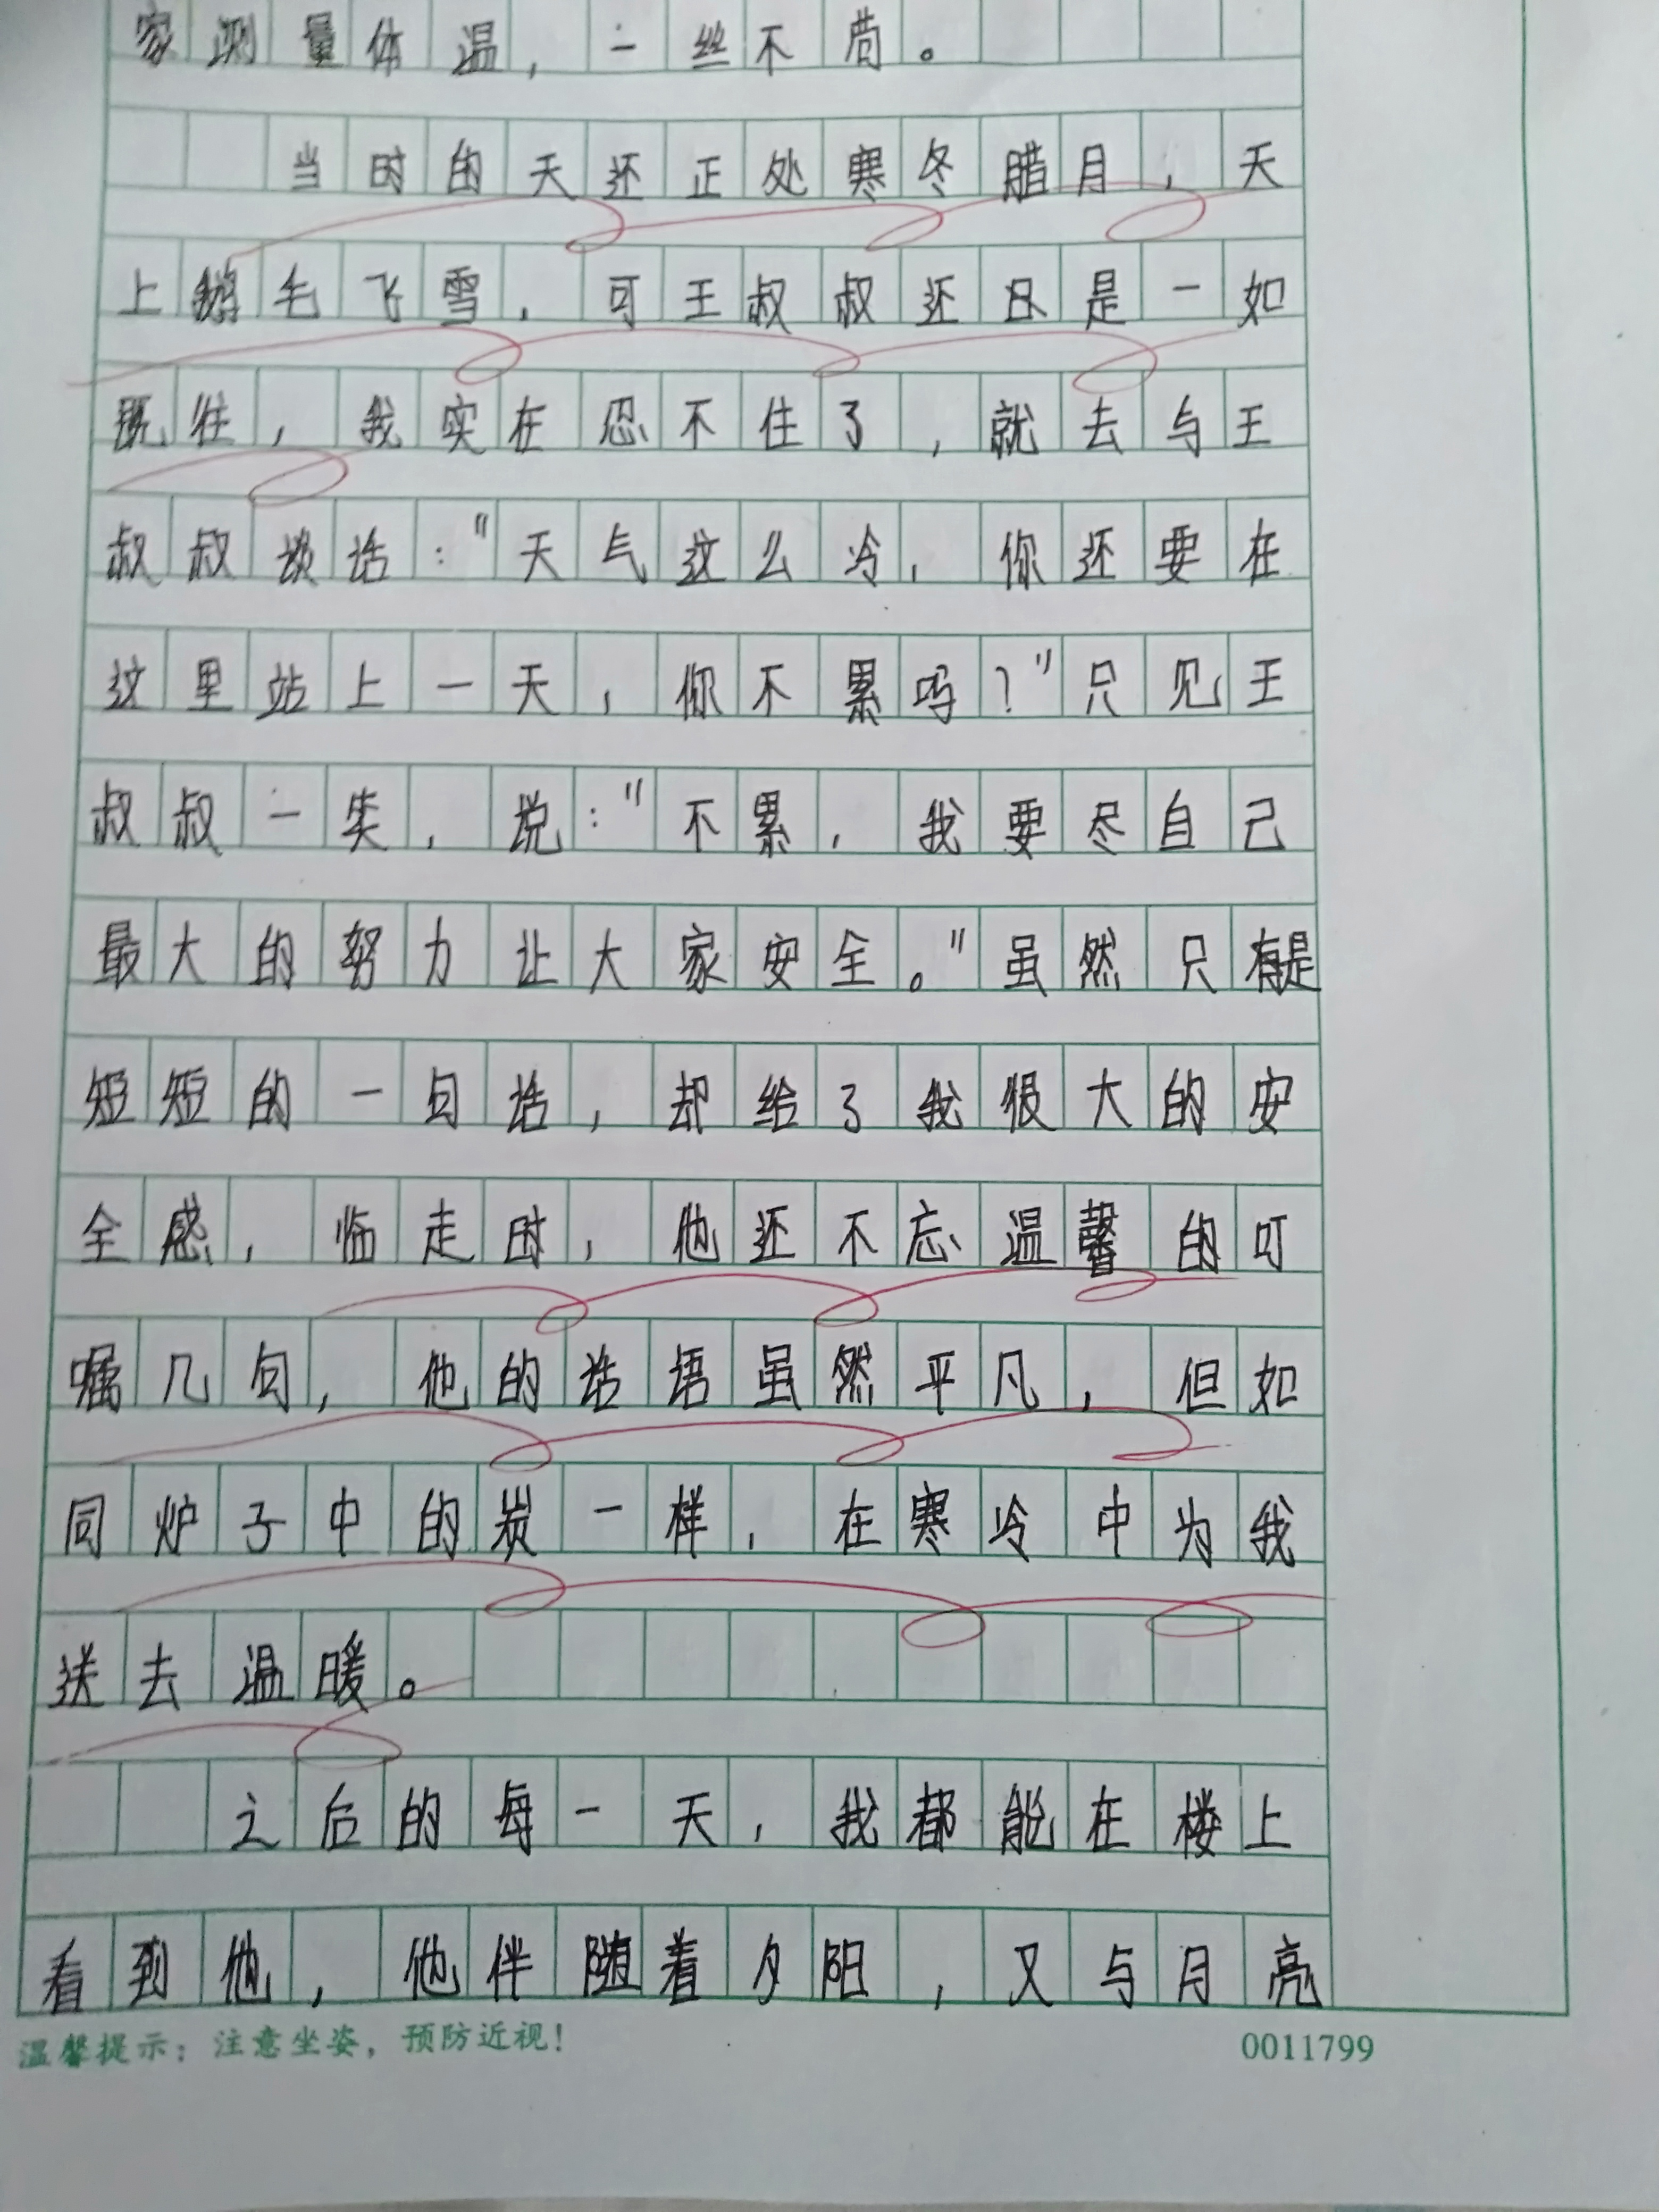 家测量体温，一丝不苟。
当时的天还正处寒冬腊月，天
上鹅毛飞雪，可王叔叔还是一如
既往，我实在忍不住了，就去与王
叔叔谈话："天气这么冷，你还要在
这里站上一天，你不累吗？"只见王
叔叔一笑，说："不累，我要尽自己
最大的努力让大家安全。"虽然只有是
短短的一句话，却给了我很大的安
全感，临走时，他还不忘温馨的叮
嘱几句，他的话语虽然平凡，但如
同炉子中的炭一样，在寒冷中为我
送去温暖。
之后的每一天，我都能在楼上
看到他，他伴随着夕阳，又与月亮
温馨提示：注意坐姿，预防近视！
0011799